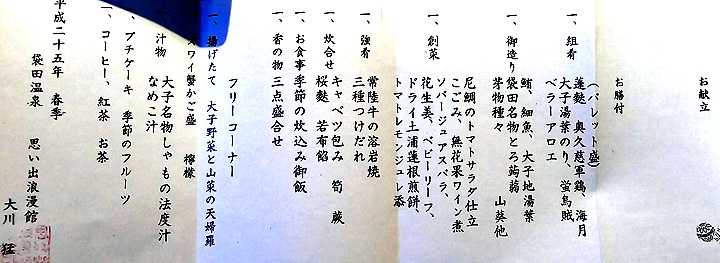 お献立
お膳付
(パレット盛)
一、組肴
蓮麩、奥久慈軍鶏、海月
大子湯葉のり、蛍烏賊
ベラーアロエ
一、御造り
鮪、細魚、大子地湯葉
袋田名物とろ蒟蒻 山葵他
芽物種々
一、創菜
尼鯛のトマトサラダ仕立
こごみ、無花果ワイン煮
ソバージュアスパラ、
花生姜、ベビーリーフ、
ドライ土浦蓮根煎餅、
トマトレモンジュレ添
一、強肴
常陸牛の溶岩焼
三種つけだれ
一、炊合せ
キャベツ包み 筍 蕨
桜麩 若布餡
一、お食事
季節の炊込み御飯
一、香の物
三点盛合せ
フリーコーナー
一、揚げたて 大子野菜と山菜の天婦羅
ズワイ蟹かご盛 檸檬
汁物 大子名物しゃもの法度汁
なめこ汁
一、プチケーキ 季節のフルーツ
一、コーヒー、紅茶 お茶
平成二十五年 春季
袋田温泉 思い出浪漫館
大川 猛